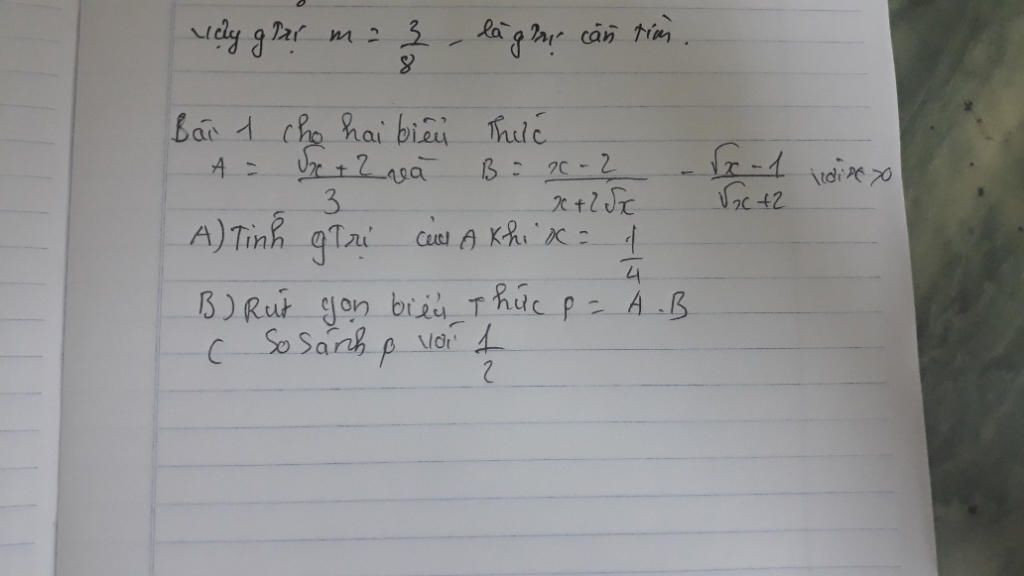 vậy gTrị m = 3/8 là gTrị cần tìm.
Bài 1 cho hai biểu thức
A = (√x + 2)/3 và B = (x - 2)/(x + 2√x) - (√x - 1)/(√x + 2) với x > 0
A) Tính gTrị của A Khi x = 1/4
B) Rút gọn biểu Thức P = A . B
C So Sánh p với 1/2